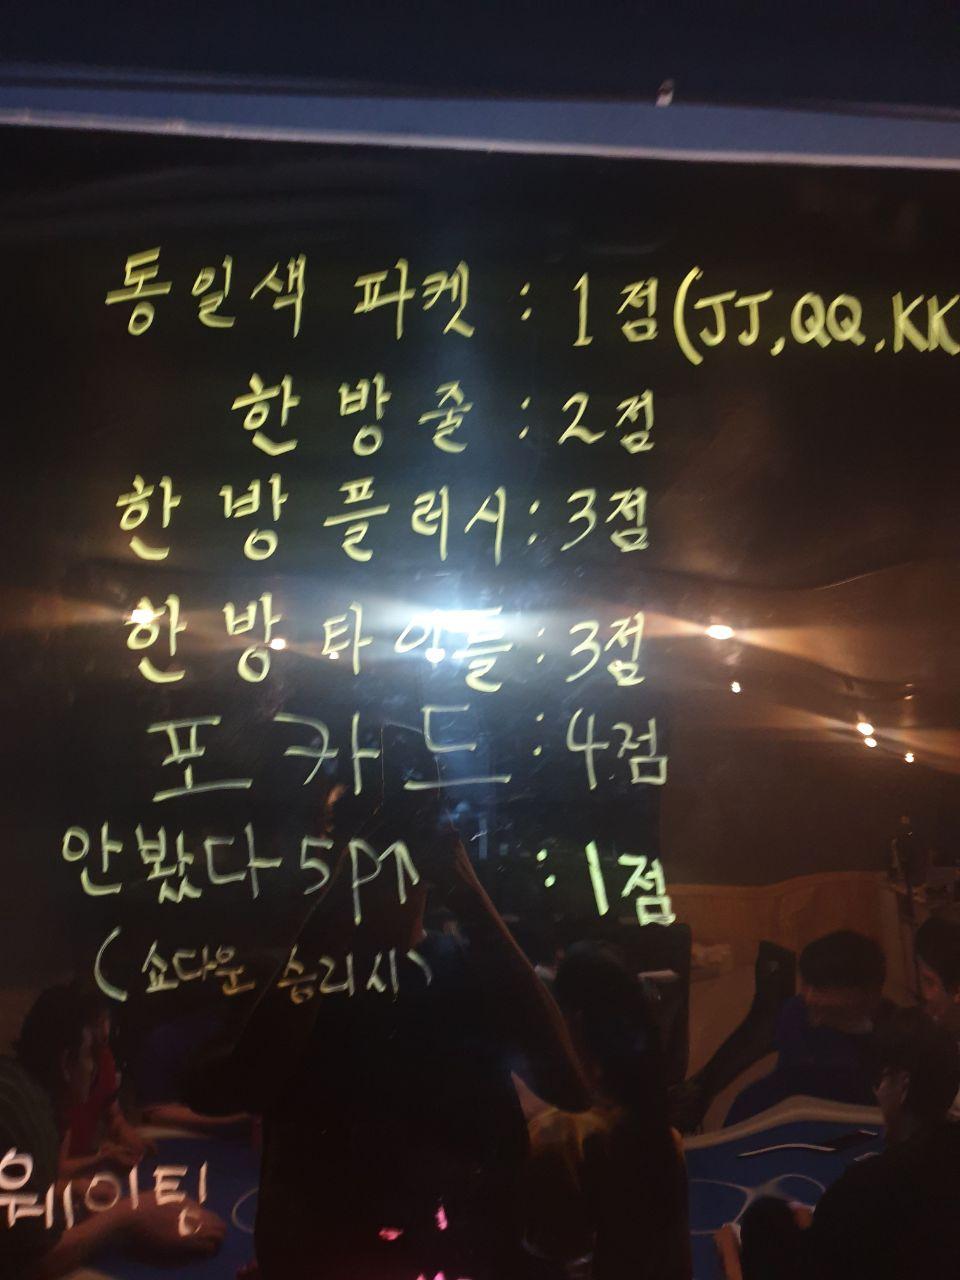 동일색 파켓 : 1점(JJ,QQ,KK
한방줄 : 2점
한방플러시 : 3점
한방타이틀 : 3점
포카드 : 4점
안봤다 5P↑ : 1점
(쇼다운 승리시)
웨이팅